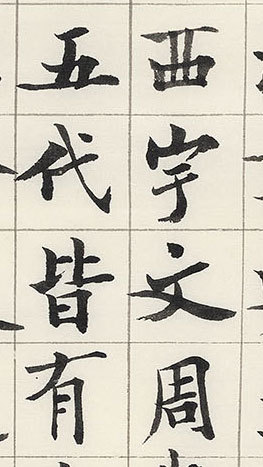 西宇文周
五代皆有